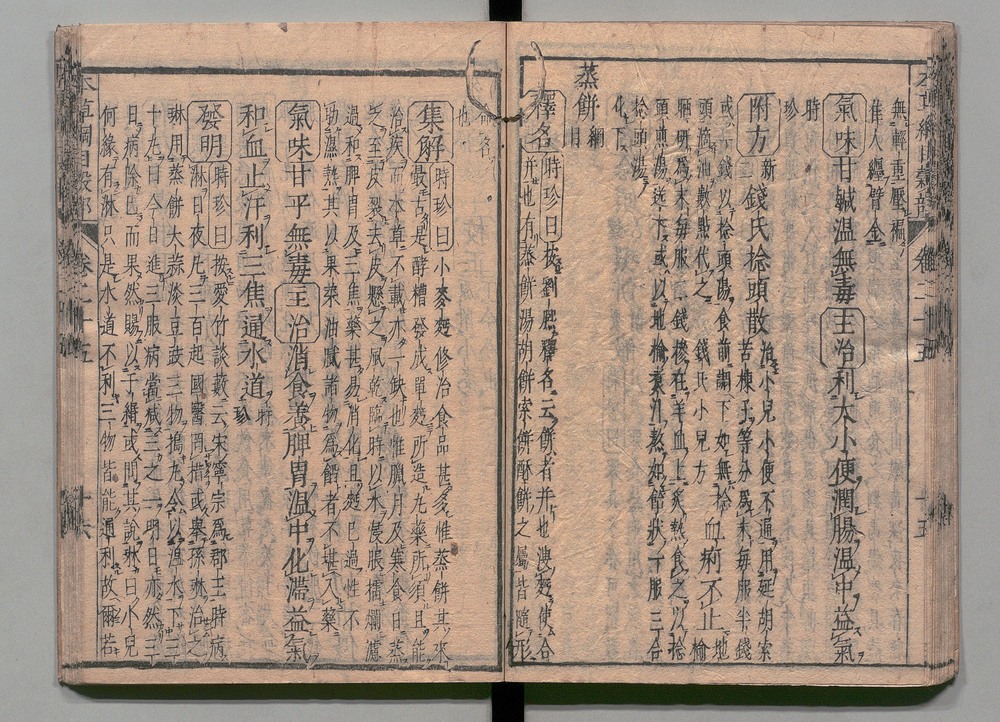 無輕重壓褊
隹人纏臂金
氣味甘鹹温無毒主治利大小便潤腸温中益氣
時
珍
附方新二錢氏捻頭散治小兒小便不通用延胡索
苦楝子等分爲末毎服半錢
或一錢以捻頭湯食前調下如無捻
頭滴油數點代之錢氏小兒方
血痢不止地榆
晒研爲末毎服二錢摻在羊血上炙熱食之以捻
頭煎湯送下或以地榆煑汁熬如飴狀一服三合
捻頭湯
化下
蒸餅綱目
釋名時珍曰按劉熙釋名云餅者并也溲麪使合
并也有蒸餅湯餅胡餅索餅酥餅之屬皆隨形
命名
也
集解時珍曰小麥麪修治食品甚多惟蒸餅其來
最古是酵糟發成單麪所造丸藥所須且能
治疾而本草不載亦一缺也惟臘月及寒食日蒸
之至皮裂去皮懸之風乾臨時以水浸脹擂爛濾
過和脾胃及三焦藥甚易消化且麪已過性不
助濕熱其以果菜油膩諸物爲餡者不堪入藥
氣味甘平無毒主治消食養脾胃温中化滯益氣
和血止汗利三焦通水道時珍
發明時珍曰按愛竹談藪云宋寧宗爲郡王時病
淋日夜凡三百起國醫罔措或舉孫琳治之
琳用蒸餅大蒜淡豆豉三物搗丸令以温水下三
十丸曰今日進三服病當減三之一明日亦然三
日病除已而果然賜以千緡或問其說琳曰小兒
何緣有淋只是水道不利三物皆能通利故爾若
本草綱目穀部 卷二十五 十六